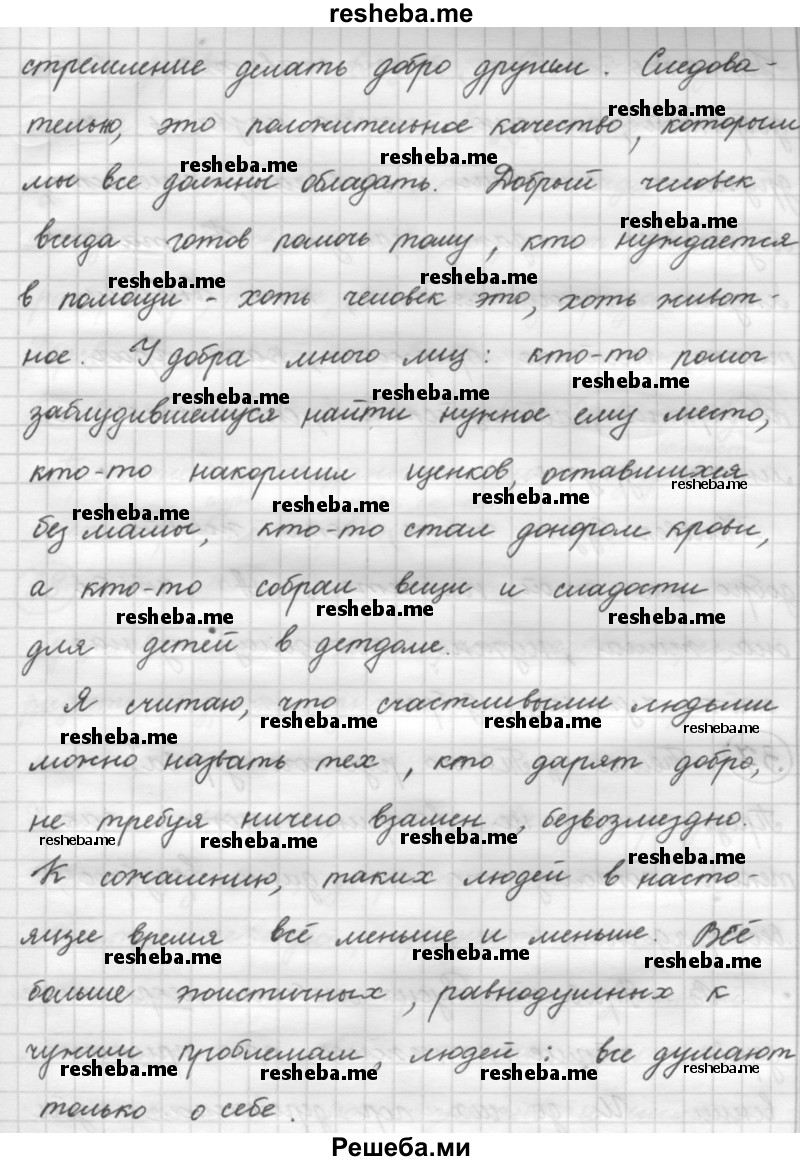 resheba.me
стремление делать добро другим. Следова-
тельно, это положительное качество, которым
resheba.me
мы все должны обладать. Добрый человек
resheba.me resheba.me
всегда готов помочь тому, кто нуждается
resheba.me
в помощи - хоть человек это, хоть живот-
resheba.me resheba.me
ное. У добра много лиц: кто-то помог
resheba.me
заблудившемуся найти нужное ему место,
resheba.me resheba.me
кто-то накормил щенков, оставшихся
resheba.me resheba.me
без мамы, кто-то стал донором крови,
resheba.me resheba.me
а кто-то собрал вещи и сладости
resheba.me resheba.me resheba.me
для детей в детдоме.
Я считаю, что счастливыми людьми
resheba.me resheba.me resheba.me resheba.me
можно назвать тех, кто дарят добро,
не требуя ничего взамен, безвозмездно.
resheba.me resheba.me resheba.me
К сожалению, таких людей в насто-
resheba.me
ящее время всё меньше и меньше. Всё
resheba.me resheba.me resheba.me
больше эгоистичных, равнодушных к
чужим проблемам, людей: все думают
resheba.me resheba.me resheba.me resheba.me
только о себе.
Решеба.ми